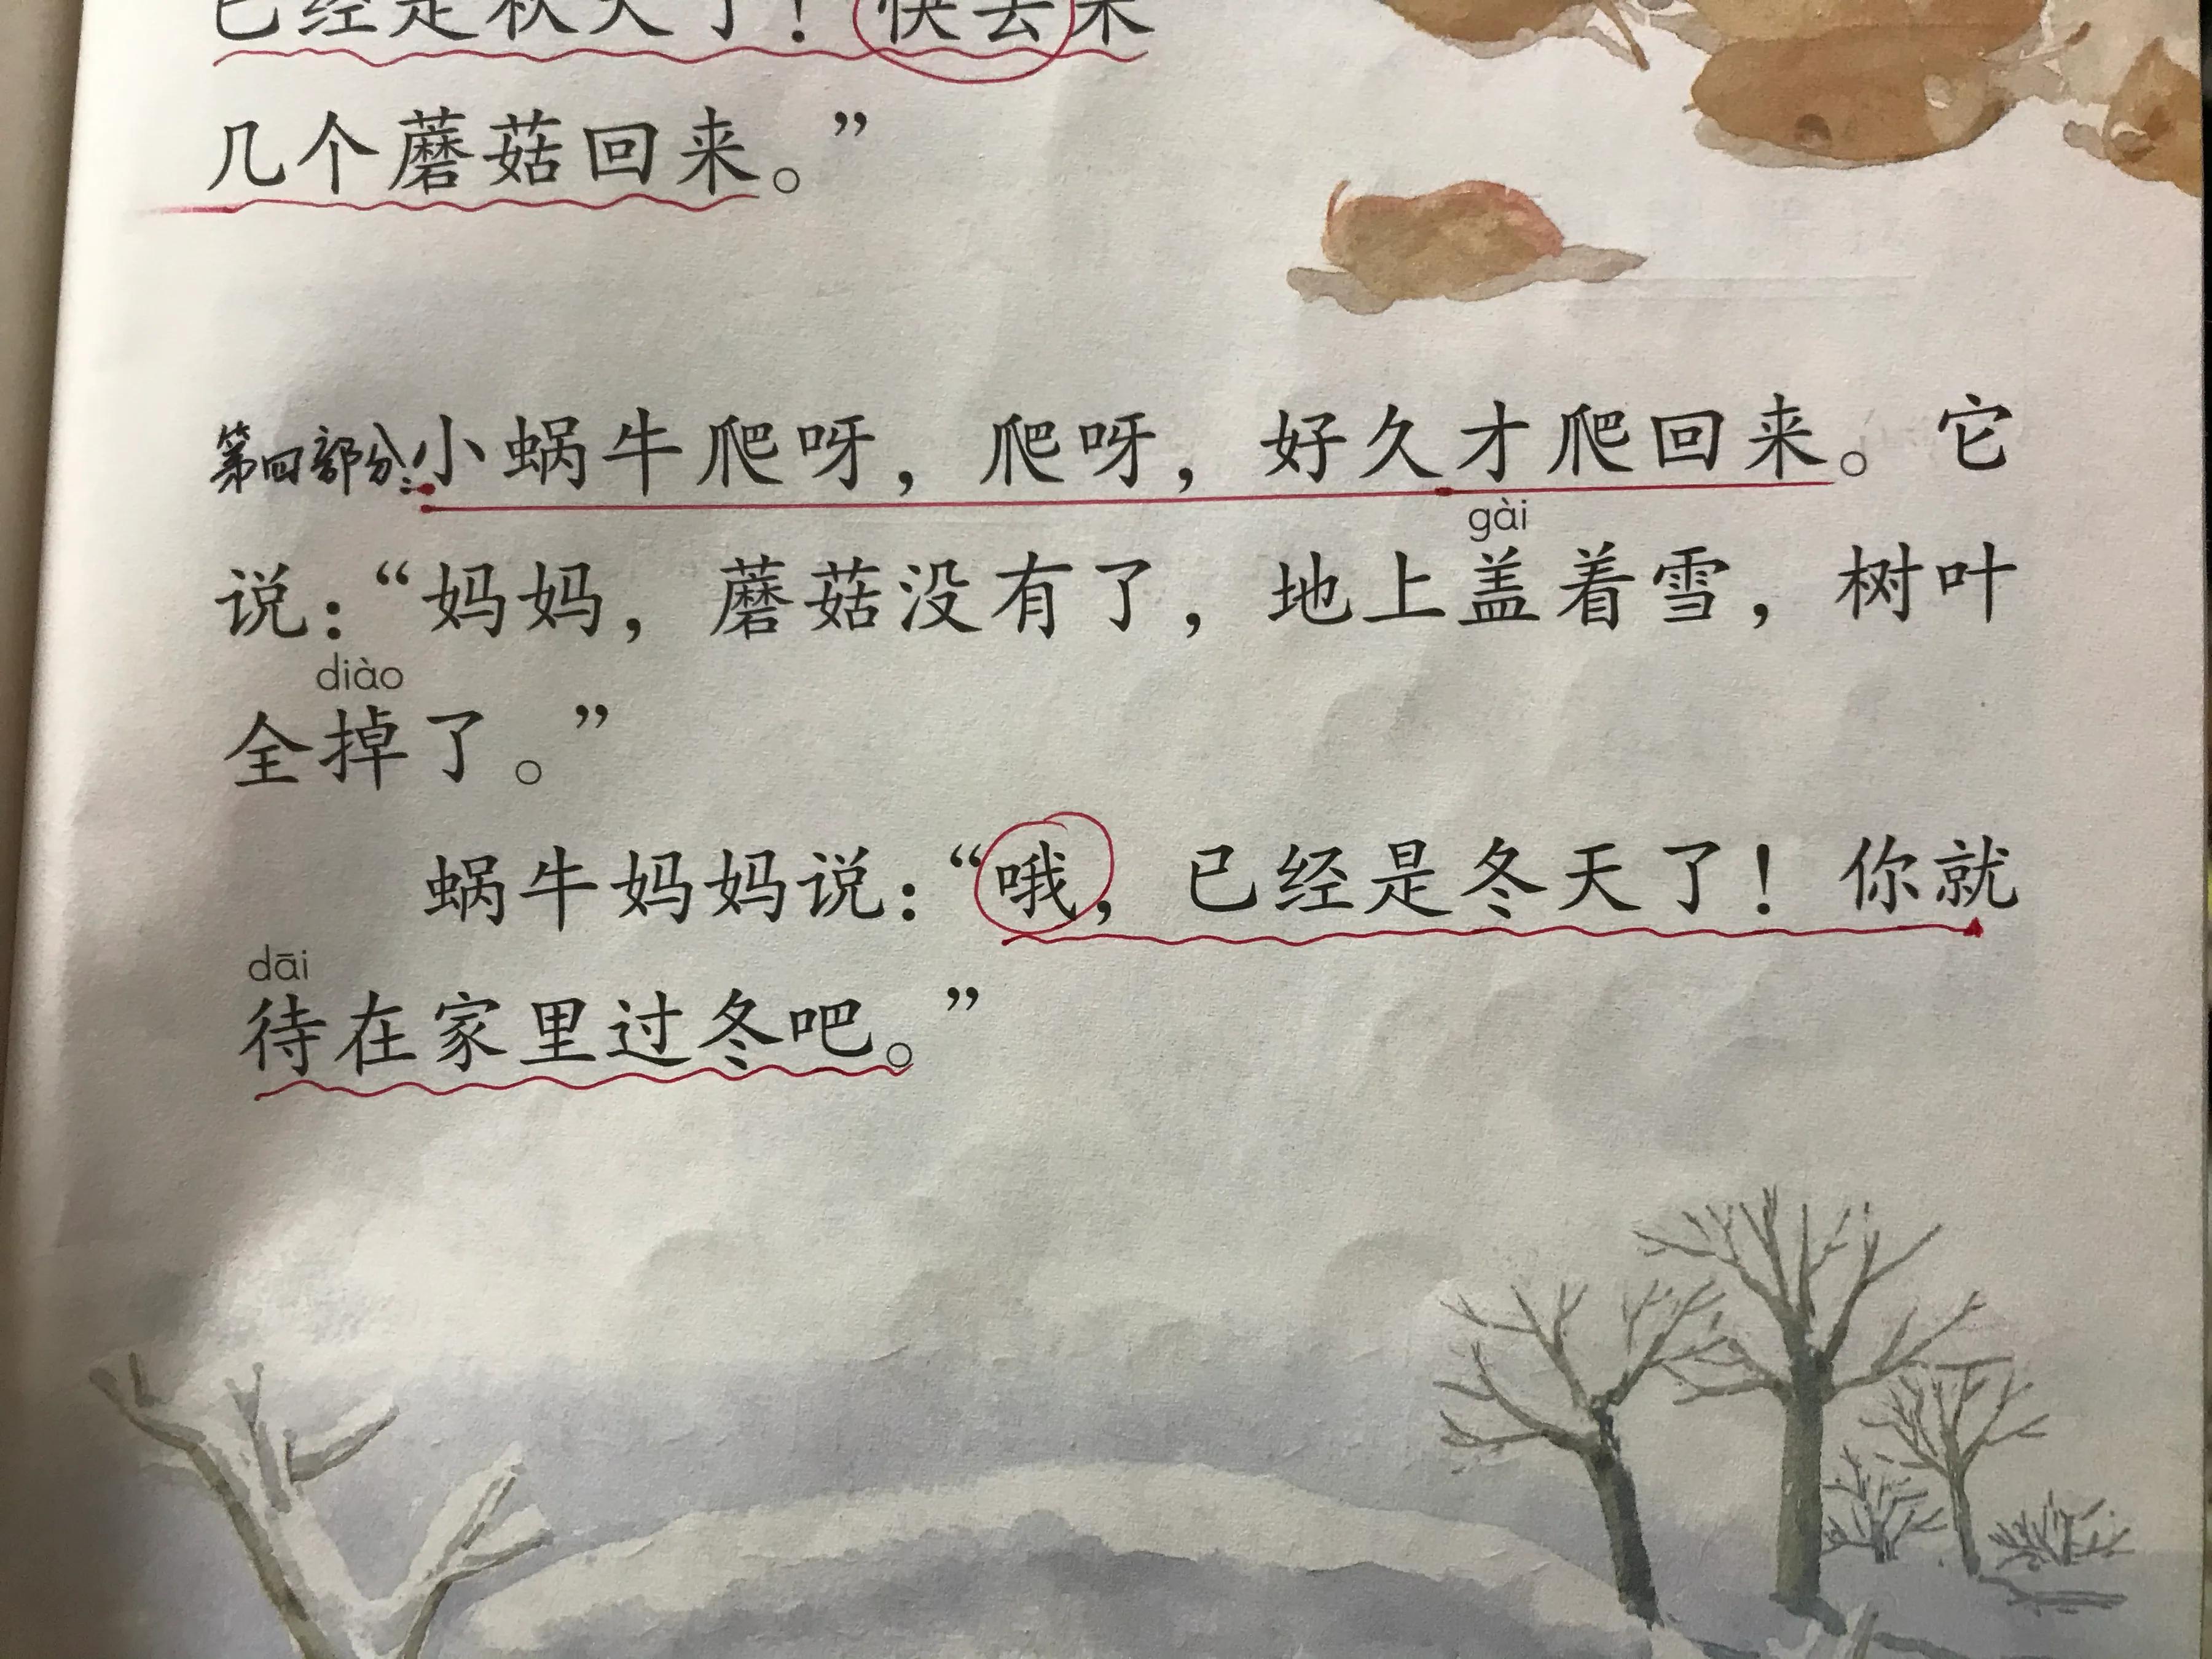 已经是秋天了！快去采
几个蘑菇回来。”
第四部分：小蜗牛爬呀，爬呀，好久才爬回来。它
gài
说：“妈妈，蘑菇没有了，地上盖着雪，树叶
diào
全掉了。”
蜗牛妈妈说：“哦，已经是冬天了！你就
dāi
待在家里过冬吧。”